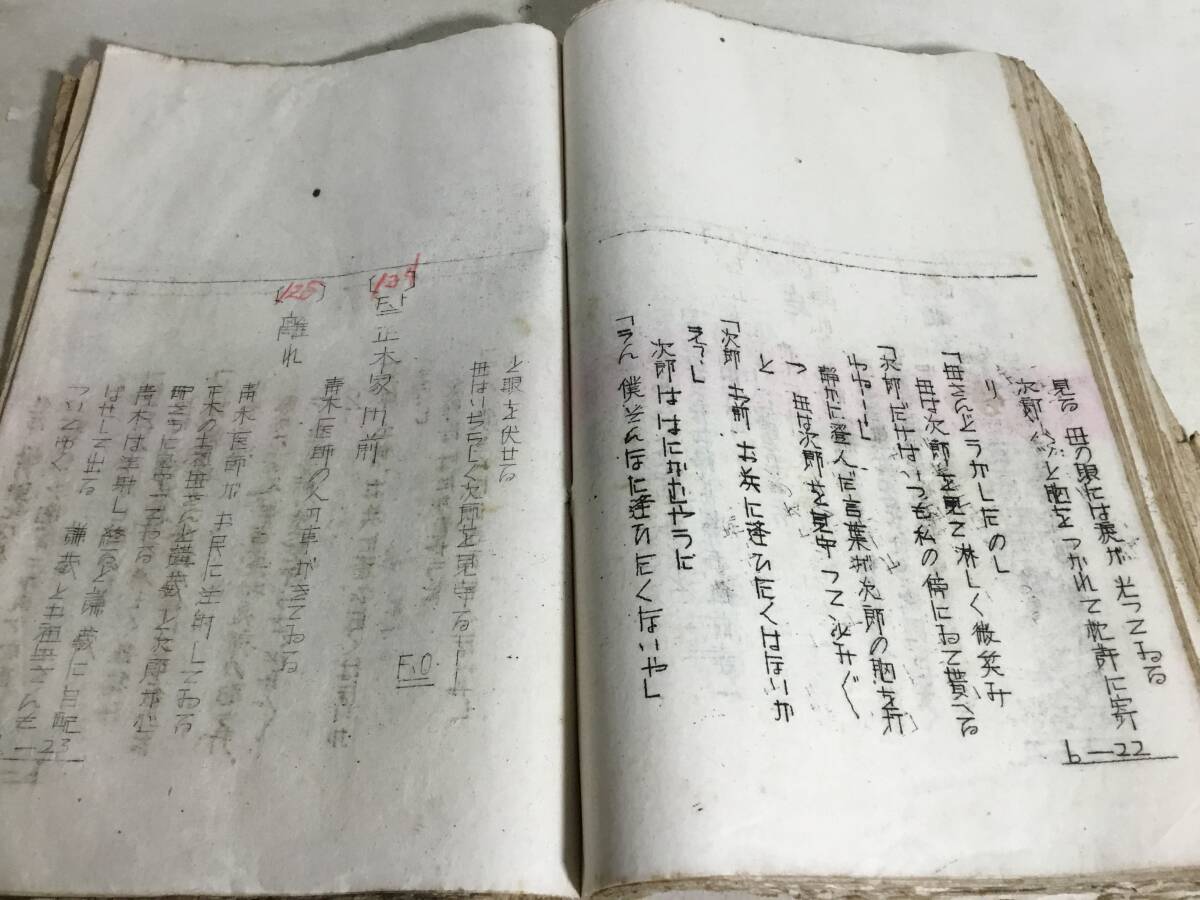 見る 母の眼には涙が光つてゐる
次郎 と胸をつかれて枕許に寄
り
「母さんどうかしたの」
母は次郎を見て淋しく微笑み
「次郎だけはいつも私の傍にゐて貰へる
わねー」
静かに澄んだ言葉が次郎の胸を打
つ 母は次郎を見守つてしみ〴〵
と
「次郎 お前 お浜に逢ひたくはないか
え?」
次郎ははにかむやうに
「うん 僕そんなに逢ひたくないや」
b-22
と眼を伏せる
母はいぢらしく次郎を見守る――
F.O
正木家の前
青木医師の人力車がきてゐる
[125]
離れ
青木医師が お民に注射してゐる
正木のお祖母さんと謙蔵と次郎が心
配さうに見守つてゐる
青木は注射し終ると謙蔵に目配
ばせして出る 謙蔵とお祖母さんも
ついてゆく
-23